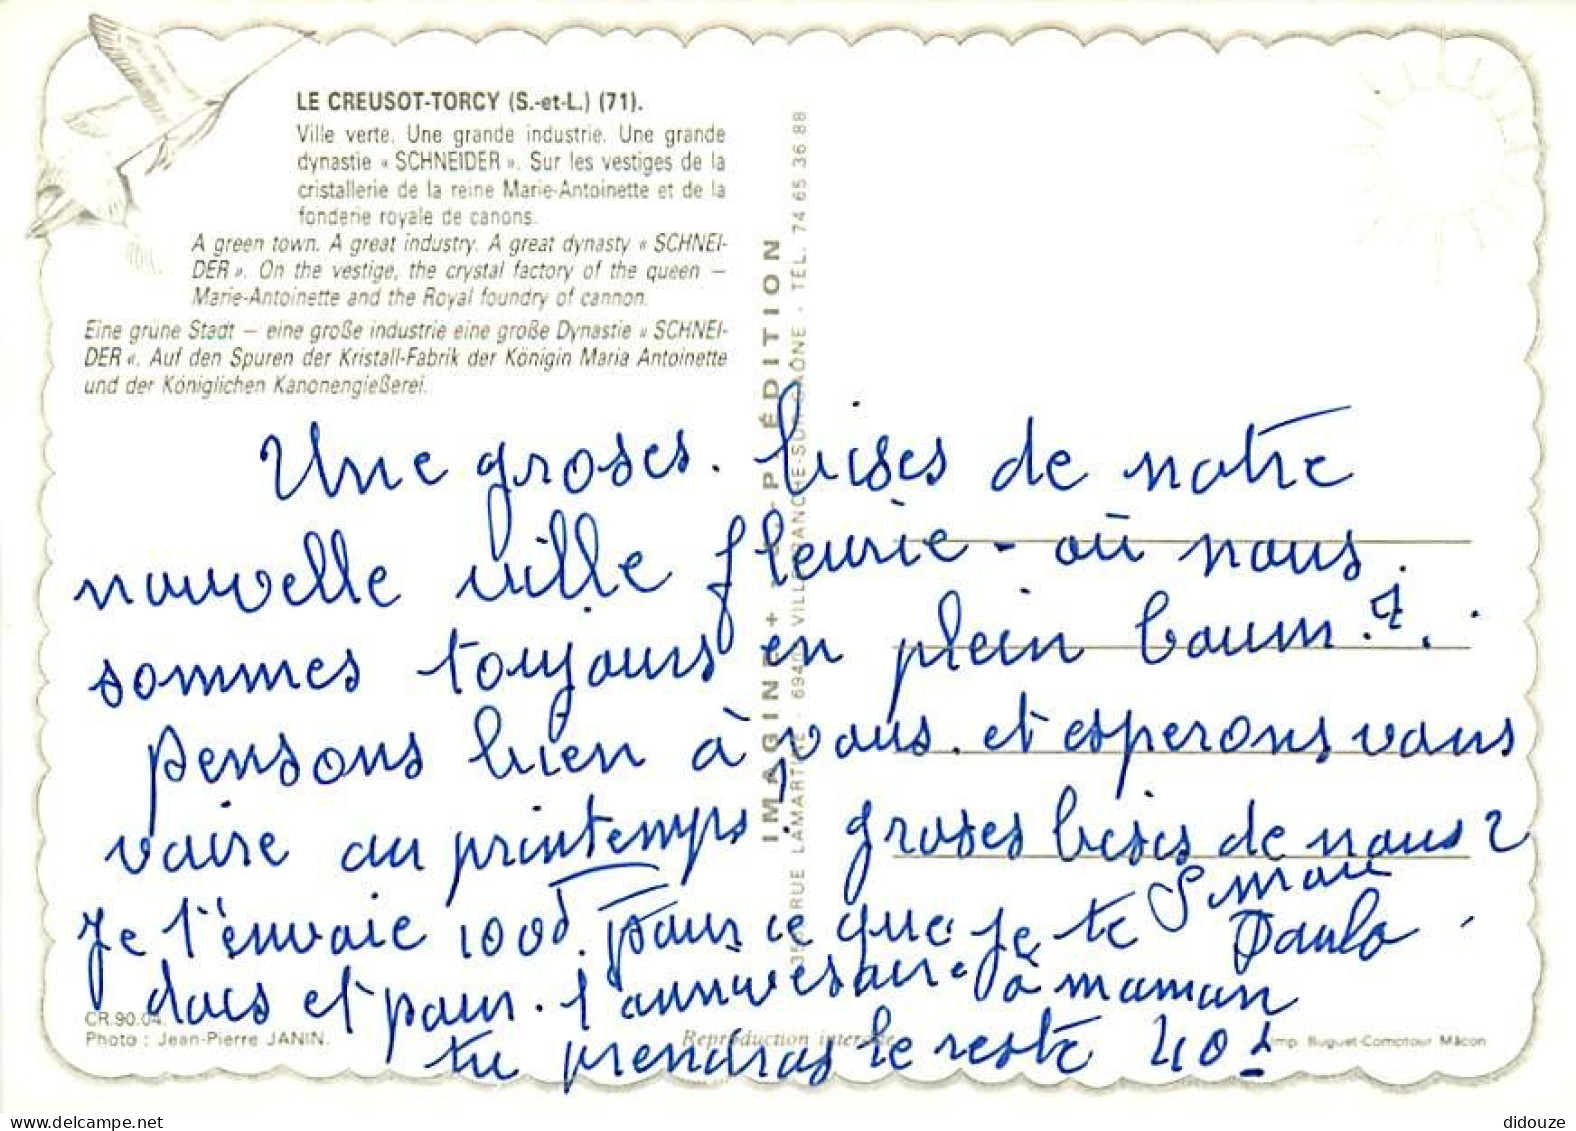 LE CREUSOT-TORCY (S.-et-L.) (71).
Ville verte. Une grande industrie. Une grande
dynastie « SCHNEIDER ». Sur les vestiges de la
cristallerie de la reine Marie-Antoinette et de la
fonderie royale de canons.
A green town. A great industry. A great dynasty « SCHNEI-
DER ». On the vestige, the crystal factory of the queen –
Marie-Antoinette and the Royal foundry of cannon.
Eine grüne Stadt – eine große industrie eine große Dynastie « SCHNEI-
DER «. Auf den Spuren der Kristall-Fabrik der Königin Maria Antoinette
und der Königlichen Kanonengießerei.
IMAGINE + - P. ÉDITION
RUE LAMARTINE - 69400 VILLEFRANCHE-SUR-SAÔNE - TEL. 74 65 36 88
Une groses. bises de notre
nouvelle ville fleurie - où nous.
sommes toujours en plein boum.?.
pensons bien à vous. et esperons vous
voire au printemps. groses bises de nous 2
Simon
Paulo
Je t'envoie 100d. pour ce que je te
dois et pour. l'anniversaire à maman
tu prendras le reste 40 £
CR.90.04.
Photo : Jean-Pierre JANIN.
Reproduction interdite
Imp. Buguet-Comptour Mâcon
didouze